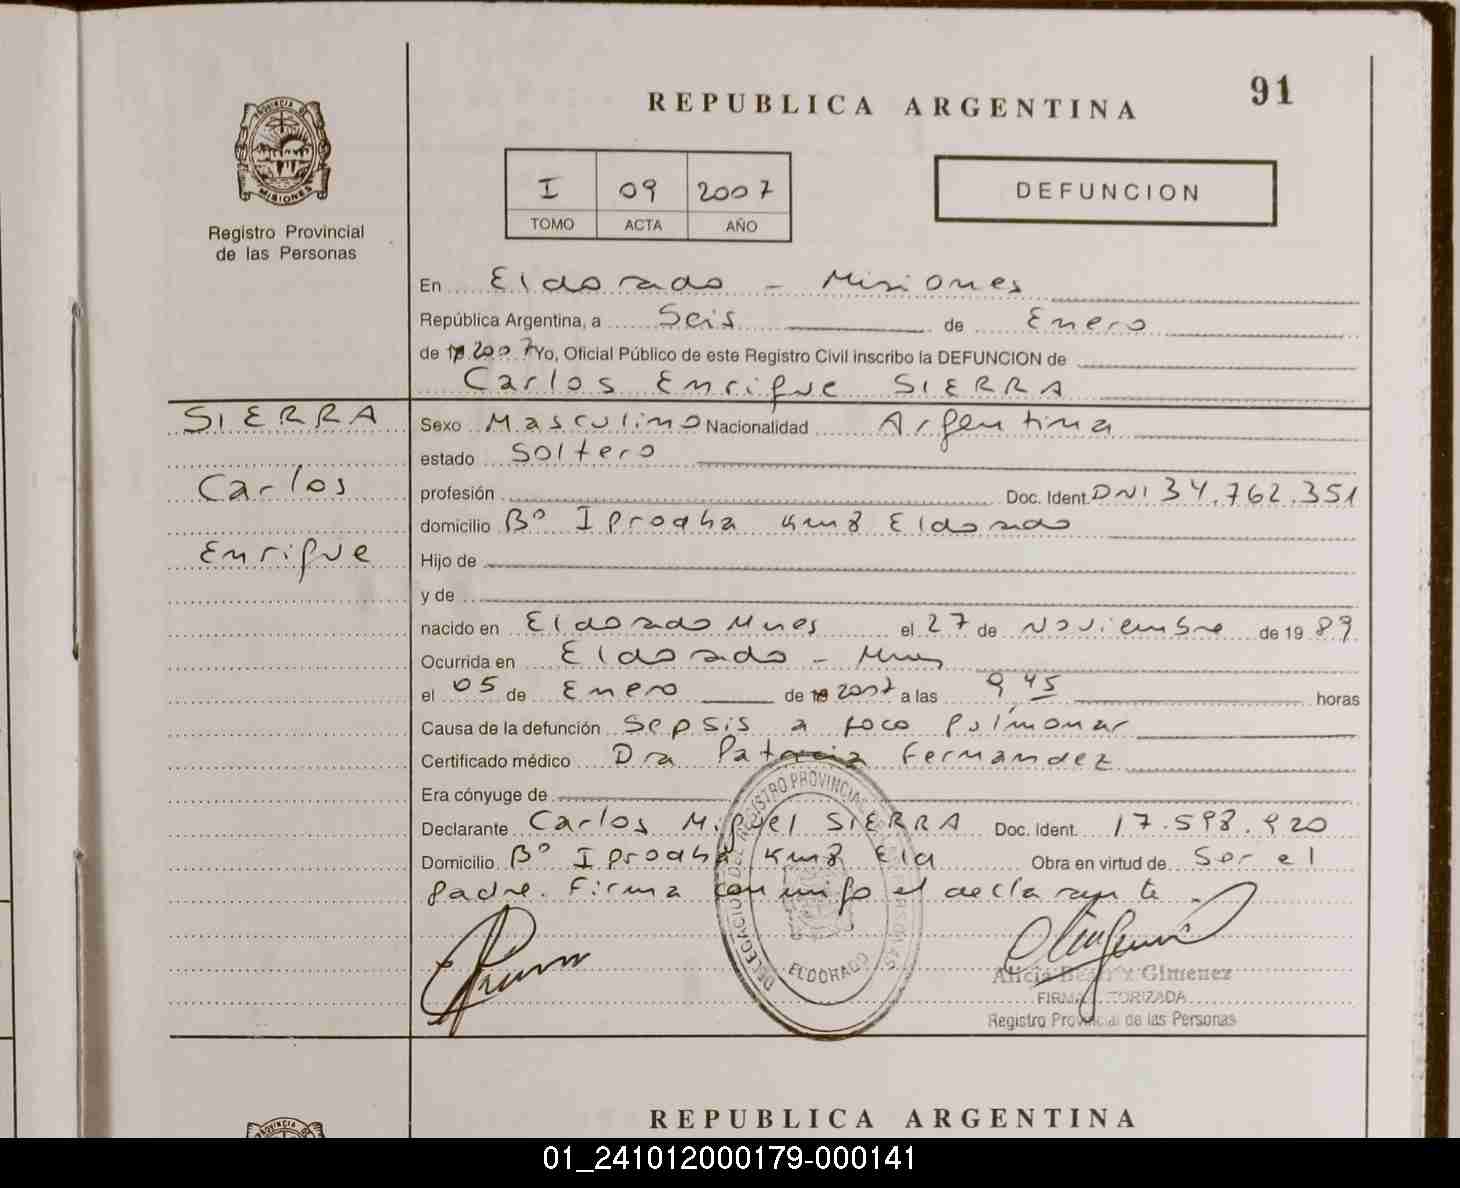 91
REPUBLICA ARGENTINA
PROVINCIA DE
MISIONES
Registro Provincial
de las Personas
I 09 2007
TOMO ACTA AÑO
DEFUNCION
En Eldorado - Misiones
República Argentina, a Seis de Enero
de 19 2007 Yo, Oficial Público de este Registro Civil inscribo la DEFUNCION de
Carlos Enrique SIERRA
SIERRA
Carlos
Enrique
Sexo Masculino Nacionalidad Argentina
estado Soltero
profesión Doc. Ident. DNI 34.762.351
domicilio B° Iprodha Km 8 Eldorado
Hijo de
y de
nacido en Eldorado Mnes el 27 de Noviembre de 19 89
Ocurrida en Eldorado - Mnes
el 05 de Enero de 19 2007 a las 9 45 horas
Causa de la defunción Sepsis a foco pulmonar
Certificado médico Dra Patricia Fernandez
Era cónyuge de
Declarante Carlos Miguel SIERRA Doc. Ident. 17.598.920
Domicilio B° Iprodha Km 8 Eld Obra en virtud de Ser el
padre. Firma conmigo el declarante.
DELEGACION DEL REGISTRO PROVINCIAL DE LAS PERSONAS
ELDORADO
Alicia Beatriz Gimenez
FIRMA AUTORIZADA
Registro Provincial de las Personas
REPUBLICA ARGENTINA
PROVINCIA DE
01_241012000179-000141